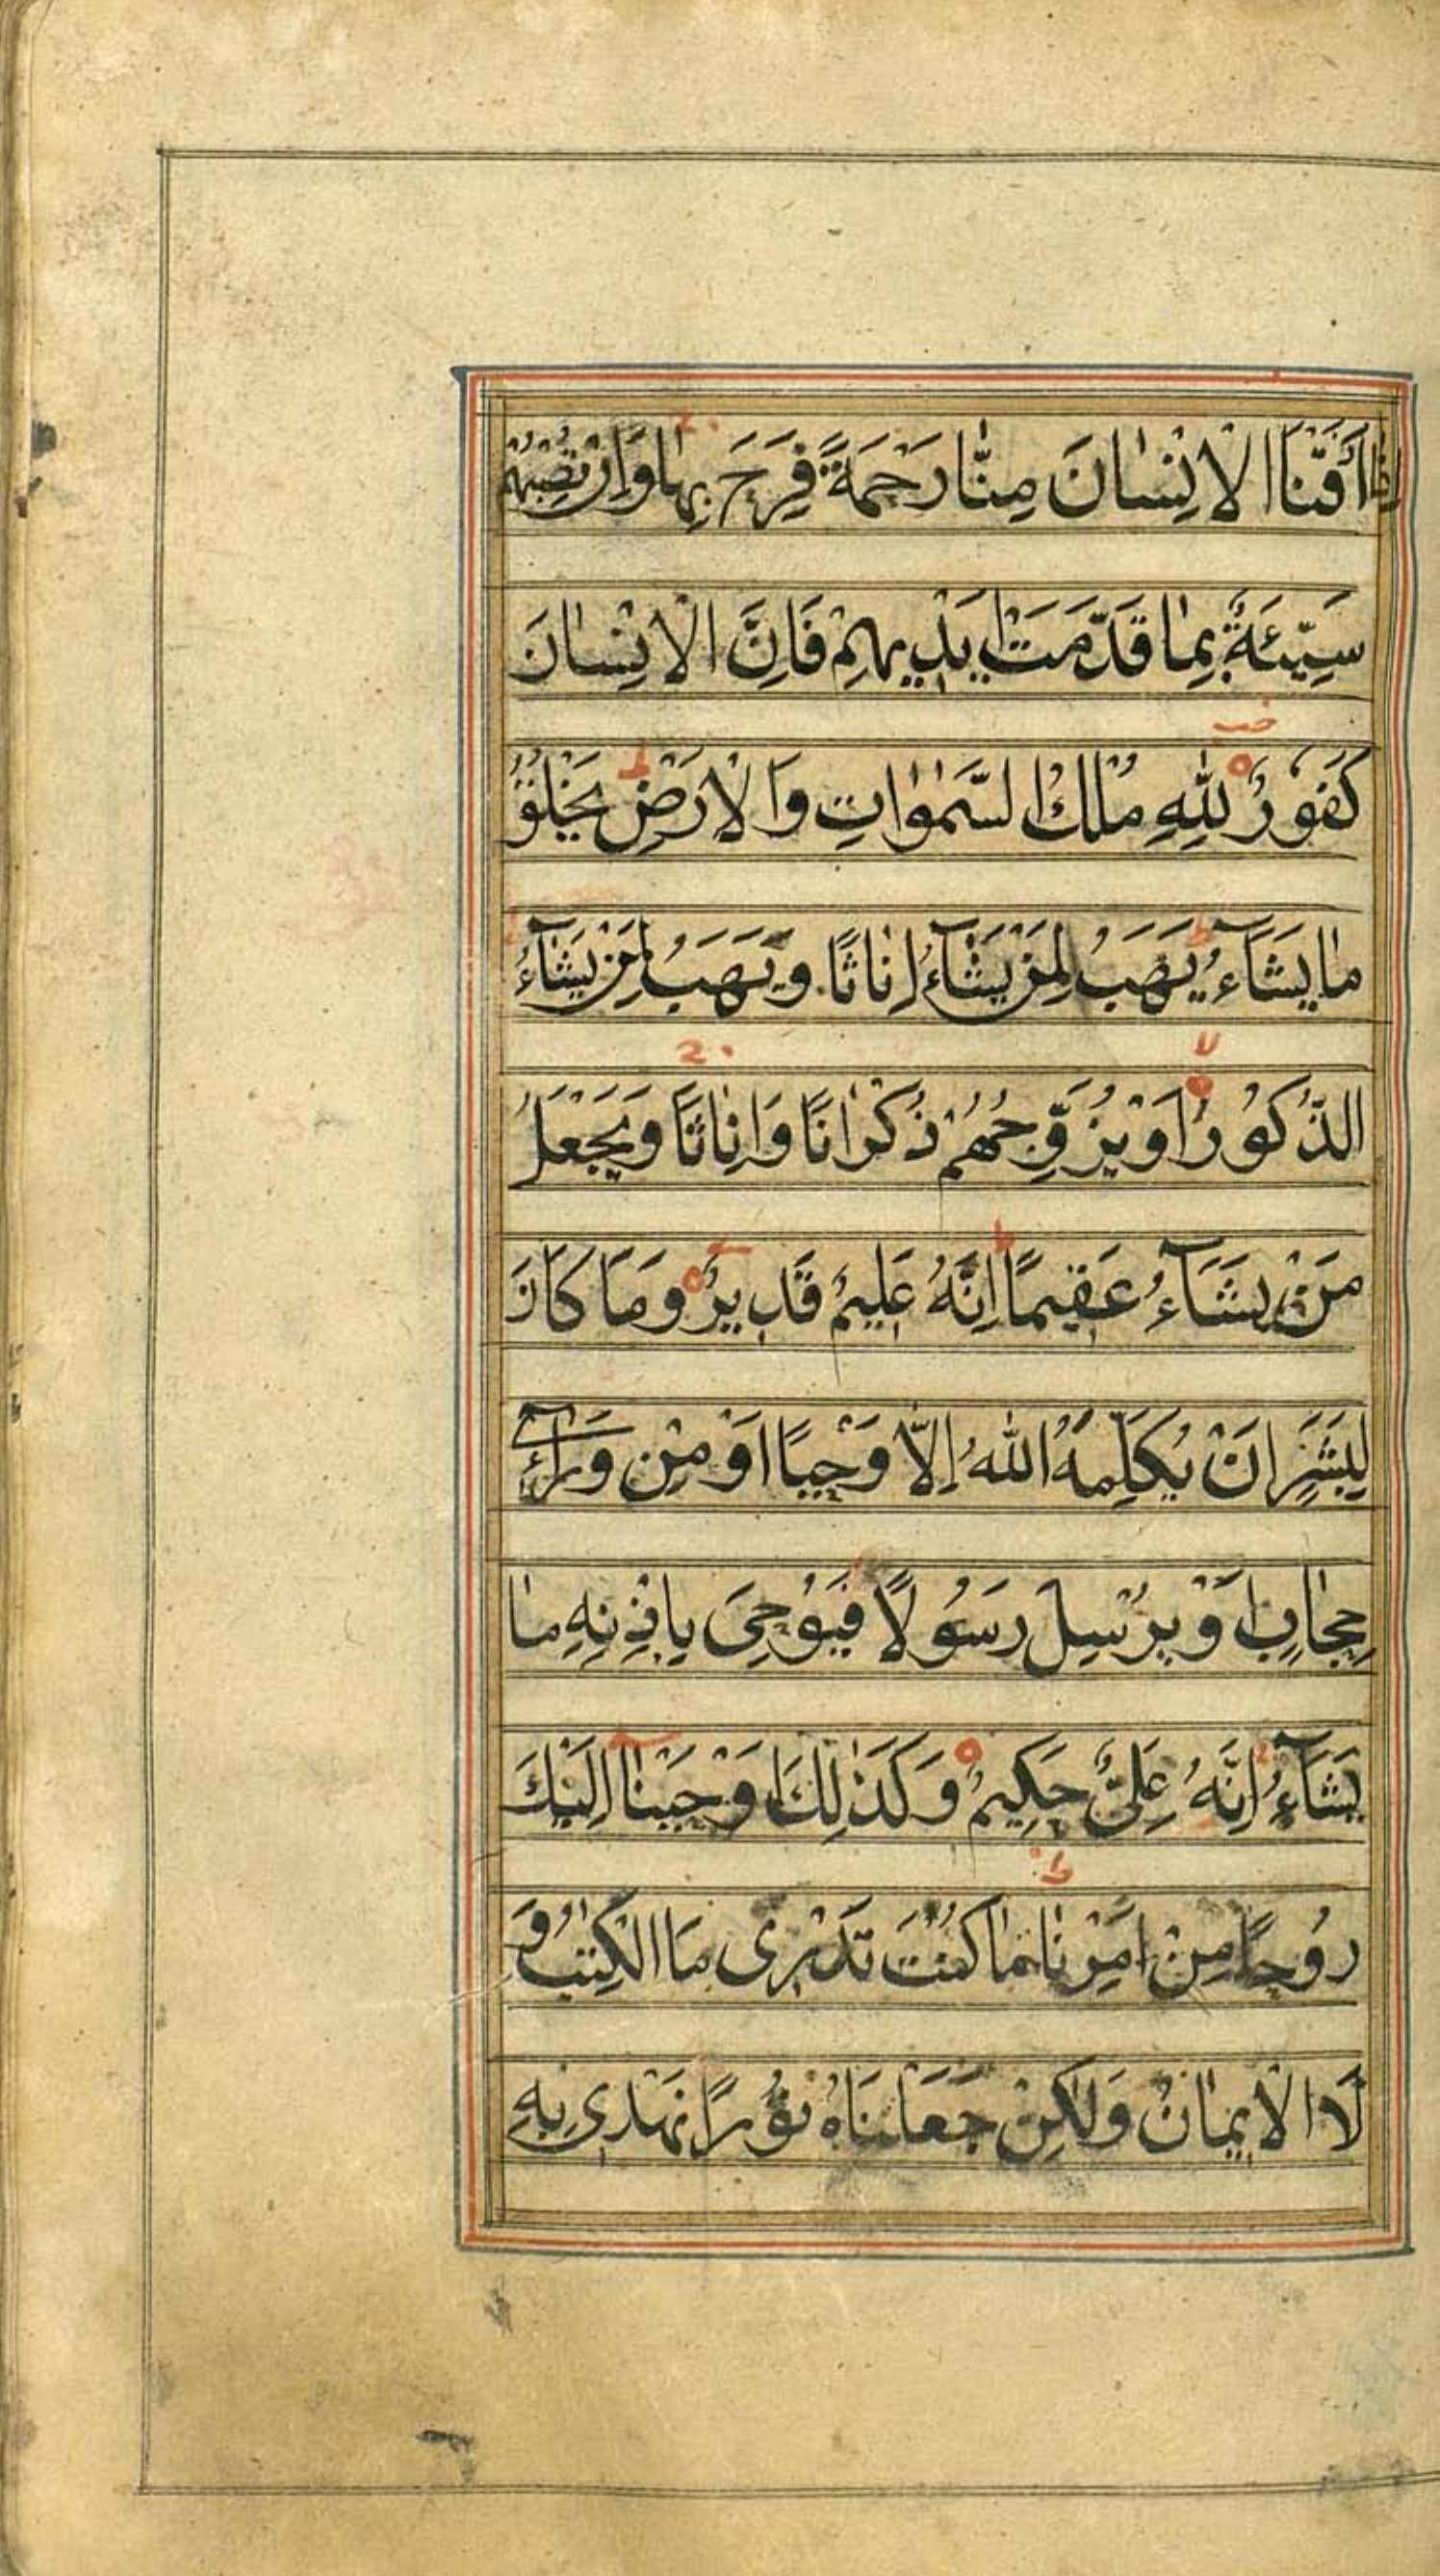 اِذٰا اَذَقْنَا الْاِنْسٰانَ مِنّٰا رَحْمَةً فَرِحَ بِهٰا وَاِنْ تُصِبْهُمْ
سَيِّئَةٌ بِمٰا قَدَّمَتْ اَيْدِيهِمْ فَاِنَّ الْاِنْسٰانَ
كَفُورٌ لِلّٰهِ مُلْكُ السَّمٰوٰاتِ وَالْاَرْضِ يَخْلُقُ
مٰا يَشَآءُ يَهَبُ لِمَنْ يَشَآءُ اِنٰاثًا وَيَهَبُ لِمَنْ يَشَآءُ
الذُّكُورَ اَوْ يُزَوِّجُهُمْ ذُكْرٰانًا وَاِنٰاثًا وَيَجْعَلُ
مَنْ يَشَآءُ عَقِيمًا اِنَّهُ عَلِيمٌ قَدِيرٌ وَمَا كَانَ
لِبَشَرٍ اَنْ يُكَلِّمَهُ اللّٰهُ اِلّٰا وَحْيًا اَوْ مِنْ وَرٰآءِ
حِجٰابٍ اَوْ يُرْسِلَ رَسُولًا فَيُوْحِىَ بِاِذْنِهِ مٰا
يَشَآءُ اِنَّهُ عَلِىٌّ حَكِيمٌ وَكَذٰلِكَ اَوْحَيْنٰآ اِلَيْكَ
رُوحًا مِنْ اَمْرِنٰا مٰا كُنْتَ تَدْرِى مَا الْكِتٰبُ وَ
لَا الْاِيمٰانُ وَلٰكِنْ جَعَلْنَاهُ نُورًا نَهْدِى بِهِ